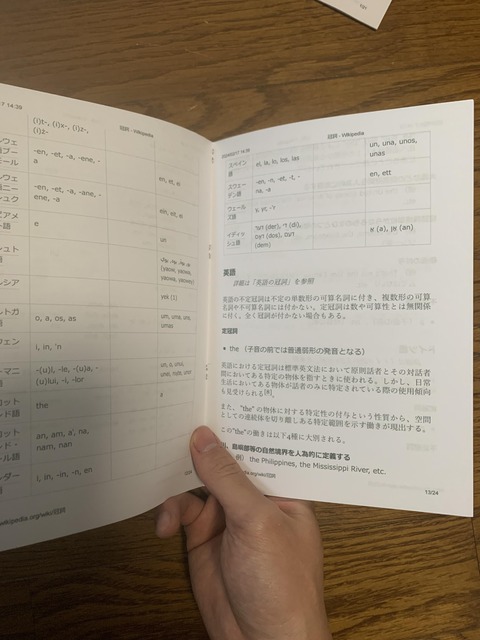 14:39
冠詞 - Wikipedia
(i)t-, (i)x-, (i)z-,
(i)ż-
-en, -et, -a, -ene, -
a
en, et, ei
-en, -et, -a, -ane, -
ene, -a
ein, eit, ei
e
un
yek (1)
o, a, os, as
um, uma, uns,
umas
i, in, 'n
-(u)l, -le, -(u)a, -
(u)lui, -i, -lor
the
a
an, am, a', na,
nam, nan
i, in, -in, -n, en
冠詞 - Wikipedia
スペイン
語
el, la, lo, los, las
un, una, unos,
unas
スウェー
デン語
-en, -n, -et, -t, -
na, -a
en, ett
ウェール
ズ語
y, yr, 'r
イディッ
シュ語
דער (der), די (di),
דאָס (dos), דעם
(dem)
אַ (a), אַן (an)
英語
詳細は「英語の冠詞」を参照
英語の不定冠詞は不定の単数形の可算名詞に付き、複数形の可算
名詞や不可算名詞には付かない。定冠詞は数や可算性とは無関係
に付く。全く冠詞が付かない場合もある。
定冠詞
• the （子音の前では普通弱形の発音となる）
英語における定冠詞は標準英文法において原則話者とその対話者
間においてある特定の物体を指すときに使われる。しかし、日常
生活においてある物体が話者のみに特定されている際の使用傾向
も見受けられる
また、"the" の物体に対する特定性の付与という性質から、空間
としての連続体を切り離しある特定範囲を示す働きが現出する。
この"the"の働きは以下4種に大別される。
島嶼部等の自然境界を人為的に定義する
例） the Philippines, the Mississippi River, etc.
13/24